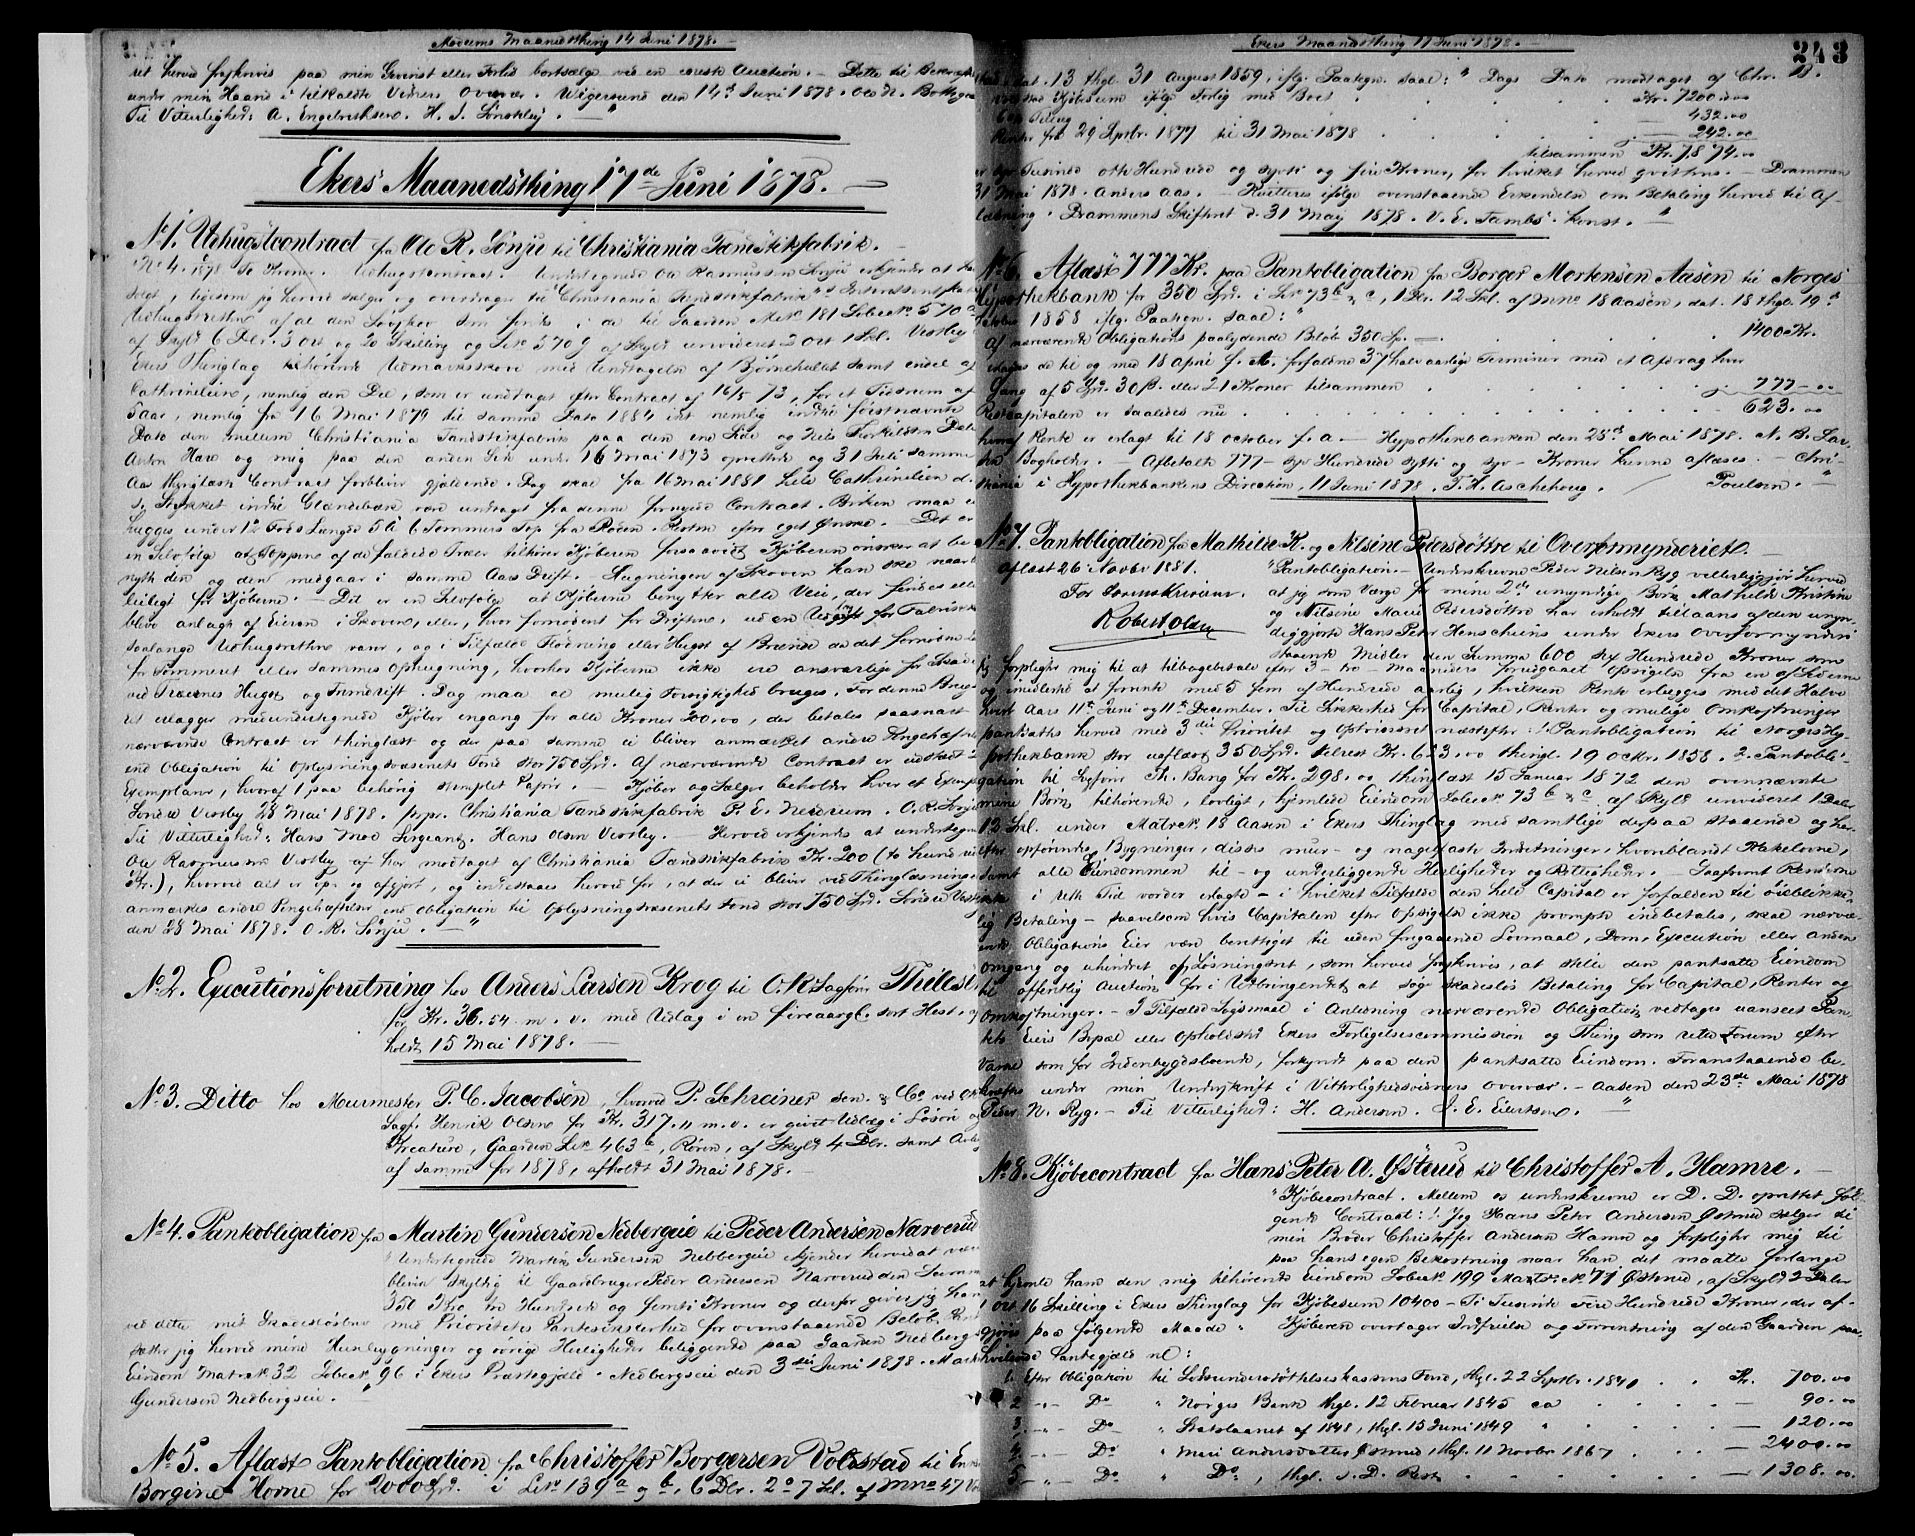 Modums Maanedsthing 14 Juni 1878.
ret herved paa min Gevinst eller Forlis bortsælge ved en Auction. — Dette til
under min Haand i tilkaldte Vidners Overvær. Wigersund den 14d Juni 1878.
Til Vitterlighed: A. Engebrethsen. H. J.
Ekers Maanedsthing 17de Juni 1878.
No 1. Udhugstcontract fra Ole R. Sønju til Christiania Tændstikfabrik.
No 4. 1878 To Kroner. Udhugstcontract. Undertegnede Ole Rasmussen Sønju erkjender at have
solgt, ligesom jeg herved sælger og overdrager til Christiania Tændstikfabrik
Udhugstretten af al den Løvskov som findes i de til Gaarden Mtk 181 Løbenk 570a
af Skyld 6 Dlr. 3 Ort og 20 Skilling og Lbk 570g af Skyld urevideret 2 Ort 1 Skl. Vestby
Ekers Thinglag tilhørende Udmarksskove med Undtagelse af Bjørnehullet samt endel af
Cathrineleine, nemlig den Del, som er undtaget efter Contract af 16/5 73, for et Tidsrum af
Aar, nemlig fra 16 Mai 1879 til samme Dato 1884 idet nemlig indtil førstnævnte
Dato den mellem Christiania Tændstikfabrik paa den ene Side og Nils Torkildsen
Anton Hare og mig paa den anden Side under 16 Mai 1873 oprettede og 31 Juli samme
Aar thinglæst Contract forbliver gjældende. Dog skal fra 16 Mai 1881 hele Cathrinelien
Stykket indtil Glændebæk være undtaget fra denne fornyede Contract. Birken maa ei
hugges under 12 Fods Længde 5 à 6 Tommers Top fra Roden. Resten efter eget Ønske. Det er
en Selvfølge at Toppene af de fældede Træer tilhører Kjøberen forsaavidt Kjøberen ønsker at be
nytte den og den medgaar i samme Aars Drift. — Hugningen af Skoven kan ske naar
leiligt for Kjøberne. — Det er en Selvfølge at Kjøberne benytter alle Veie, der findes eller
blive anlagt af Eieren i Skovene, eller, hvor fornødent for Driften, uden Udgift for Fabrikken
saalænge Udhugstretten varer, og i Tilfælde Flødning eller Hugst af Brænde da det fornødne
for Tømmeret eller sammes Ophugning, hvorhos Kjøberne ikke ere ansvarlige for Skade
ved Træernes Hugst og Fremdrift. Dog maa al mulig Forsigtighed bruges. For denne Brugs
ret erlægger medundertegnede Kjøber engang for alle Kroner 200,00, der betales saasnart
nærværende Contract er thinglæst og der paa samme ei bliver anmærket andre Pengehæftelser
end Obligation til Oplysningsvæsenets Fond stor 750 Spd. Af nærværende Contract er udstedt 2
Exemplarer, hvoraf 1 paa behørig stemplet Papir. — Kjøber og Sælger beholder hver et Exempl
Søndre Vestby 28 Mai 1878. pr.pr. Christiania Tændstikfabrik P. E. Nedrum. O. R. Sønju
Til Vitterlighed: Hans Moe Sergeant. Hans Olsen Vestby. Herved erkjendes at undertegnede
Ole Rasmussen Vestby af har modtaget af Christiania Tændstikfabrik Kr. 200 (to hundrede
Kr.), hvorved alt er op- og afgjort, og indestaaes herved for, at der ei bliver ved Thinglæsningen
anmærket andre Pengehæftelser end Obligation til Oplysningsvæsenets Fond stor 750 Spd. Søndre Vestby
den 28 Mai 1878. O. R. Sønju.
No 2. Executionsforretning hos Anders Larsen Krog til O.R.Sagfører Thilesen
for Kr. 36.54 m. v. med Udlæg i en fireaarg. sort Hest, af
holdt 15 Mai 1878.
No 3. Ditto hos Murmester P. C. Jacobsen, hvorved P. Schreiner sen. & Co ved OR
Sagf. Henrik Olsen for Kr. 317. 11 m. v. er givet Udlæg i Løsøre og
Kreature, Gaarden Lbk 463b, Røren, af Skyld 4 Dlr. samt Avling
af samme for 1878, afholdt 31 Mai 1878.
No 4. Pantobligation fra Martin Gundersen Nedbergeie til Peder Andersen Narverud
"Undertegnede Martin Gundersen Nedbergeie erkjender herved at være
bleven skyldig til Gaardbruger Peder Andersen Narverud den Summa
350 Kr tre Hundrede og femti Kroner og derfor giver jeg ham
ved dette mit Gjældsbrev med Prioritets Pantesikkerhed for ovenstaaende Beløb. Pant
sætter jeg herved mine Husbygninger og øvrige Herligheder beliggende paa Gaarden Nedbergs
Eiendom Matr. No 32 Løbenk 96 i Ekers Præstegjæld. Nedbergseie den 3die Juni 1878. Martin
Gundersen Nedbergseie.
No 5. Aflæst Pantobligation fra Christoffer Borgersen Voldstad til Enke
Borgine Horne for 2000 Spd. i Lbk 139a og b, 6 Dlr. 2 o 7 Skl. af Mno 47
Ekers Maanedsthing 17 Juni 1878.
243
dat. 13 thgl. 31 August 1859, iflg. Paategn. saal: "Dags Dato modtaget af Chr. B.
Volstad Kjøbesum ifølge Forlig med Boet . . . Kr. 7200.00
432.00
Renter fra 29 Septbr. 1877 til 31 Mai 1878 . . . 242.00
tilsammen Kr. 7874.00
er syv Tusinde otte Hundrede og sytti og fire Kroner, for hvilket herved qvitteres. — Drammen
31 Mai 1878. Anders Aas. — Qvitteres ifølge ovenstaaende Erkjendelse om Betaling herved til Af-
læsning. Drammens Skifteret d. 31 May 1878. V. E. Tambs. konst.
No 6. Aflæst 777 Kr. paa Pantobligation fra Borger Mortensen Aasen til Norges
Hypothekbank for 350 Spd. i Lbk 73b & c, 1 Dlr. 12 Skl. af Mno 18 Aasen, dat. 18 thgl. 19de
October 1858 iflg. Paategn. saal:
Af nærværende Obligations paalydende Beløb 350 Sp. — 1400 Kr.
erlagdes de til og med 18 April f. A. forfaldne 37 halvaarlige Terminer med et Afdrag hver
Gang af 5 Spd. 30 β. eller 21 Kroner tilsammen . . . 777.00
Restcapitalen er saaledes nu . . . 623.00
hvoraf Rente er erlagt til 18 October f. a. — Hypothekbanken den 25de Mai 1878. N. B. Lar-
sen Bogholder. — Afbetalte 777 — syv Hundrede sytti og syv — Kroner kunne aflæses. — Chri-
stiania i Hypothekbankens Direction, 11 Juni 1878. T. H. Aschehoug. / Poulsen.
No 7. Pantobligation fra Mathilde K. og Nilsine Pedersdøttre til Overformynderiet.
Aflæst 26 Novbr 1881.
For Sorenskriveren.
Robert Olsen
"Pantobligation. — Underskrevne Peder Nilsen Ryg vitterliggjør herved
at jeg som Værge for mine 2de umyndige Børn Mathilde Kristine
og Nilsine Marie Pedersdøttre har erholdt tillaans af den umyn-
diggjorte Hans Peter Henschiens under Ekers Overformynderi
staaende Midler den Summa 600 sex Hundrede Kroner som
jeg forpligter mig til at tilbagebetale efter 3 - tre - Maaneders forudgaaet Opsigelse fra en af Siderne
og imidlertid at forrente med 5 fem af Hundrede aarlig, hvilken Rente erlægges med det Halve
hvert Aars 11te Juni og 11te December. Til Sikkerhed for Capital, Renter og mulige Omkostninger
pantsættes herved med 3die Prioritet og Oprykningsret næstefter: 1. Pantobligation til Norges Hy-
pothekbank stor uaflæst 350 Spd. tilrest Kr. 623.00 thingl. 19 Octbr. 1858. 2. Pantobli-
gation til Frøken Th. Bang for Kr. 298.00 thinglæst 15 Januar 1872 den ovennævnte
mine Børn tilhørende, lovligt, hjemlede Eiendom Løbenk 73b & c af Skyld urevideret 1 Daler
12 Skl. under Matrek. 18 Aasen i Ekers Thinglag med samtlige derpaa staaende og her-
efter opførende Bygninger, disses mur- og nagelfaste Indretninger, hvoriblandt Kakelovne,
samt alle Eiendommen til- og underliggende Herligheder og Rettigheder. — Saafremt Renterne
ikke i rette Tid vorder erlagte — i hvilket Tilfælde den hele Capital er forfalden til øieblikke-
lig Betaling — saavelsom hvis Capitalen efter Opsigelse ikke prompte indbetales, skal nærvæ-
rende Obligations Eier være berettiget til uden foregaaende Lovmaal, Dom, Execution eller anden
Omgang og uhindret af Løsningsret, som herved fraskrives, at stille den pantsatte Eiendom
til offentlig Auction for i Udbringendet at søge skadesløs Betaling for Capital, Renter og
Omkostninger. — I Tilfælde Søgsmaal i Anledning nærværende Obligation vedtages uanseet Pan-
tets Eiers Bopæl eller Opholdssted Ekers Forligelsescommission og Thing som rette Forum efter
Varsel som for Indenbygdsboende, forkyndt paa den pantsatte Eiendom. Foranstaaende be-
kræftes under min Underskrift i Vitterlighedsvidners Overvær. — Aasen den 23de Mai 1878
Peder N. Ryg. — Til Vitterlighed: H. Andersen. J. E. Eilertsen.
No 8. Kjøbecontract fra Hans Peter A. Østerud til Christoffer A. Hamre.
"Kjøbecontract. Mellem os underskrevne er D. D. oprettet føl-
gende Contract: 1. Jeg Hans Peter Andersen Østerud sælger til
min Broder Christoffer Andersen Hamre og forpligter mig til
paa hans egen Bekostning naar han det maatte forlange
at hjemle ham den mig tilhørende Eiendom Løbenk 199 Matr. No 77 Østerud, af Skyld 2 Daler
1 Ort 16 Skilling i Ekers Thinglag for Kjøbesum 10400 — Ti Tusinde Fire Hundrede Kroner, der af-
gjøres paa følgende Maade. Kjøberen overtager Indfrielse og Forrentning af den Gaarden paa-
hvilende Pantegjæld nl:
1. Efter Obligation til Fond, thgl. 22 Septbr. 1840 . . Kr. 700.00
2 -"- Do " Norges Bank thgl. 12 Februar 1845 ca . . . 90.00
3 -"- Do " Statslaanet af 1848, thgl. 15 Juni 1849 . . . 120.00
4 -"- Do " Mari Andersdatter Østerud thgl. 11 Novbr 1867 . . . 2400.00
5 -"- Do " Do, thgl. s. D. Rest . . . 1308.00.